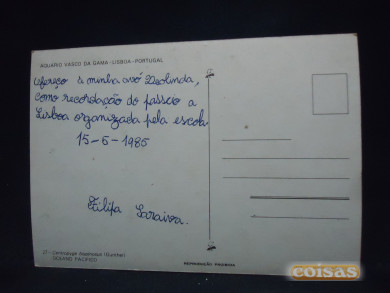 AQUARIO VASCO DA GAMA - LISBOA - PORTUGAL
Ofereço à minha avó Deolinda,
como recordação do passeio a
Lisboa organizada pela escola.
15-5-1985
Filipa Saraiva.
27 - Centropyge flavissimus (Günther)
OCEANO PACIFICO
REPRODUÇÃO PROIBIDA
coisas